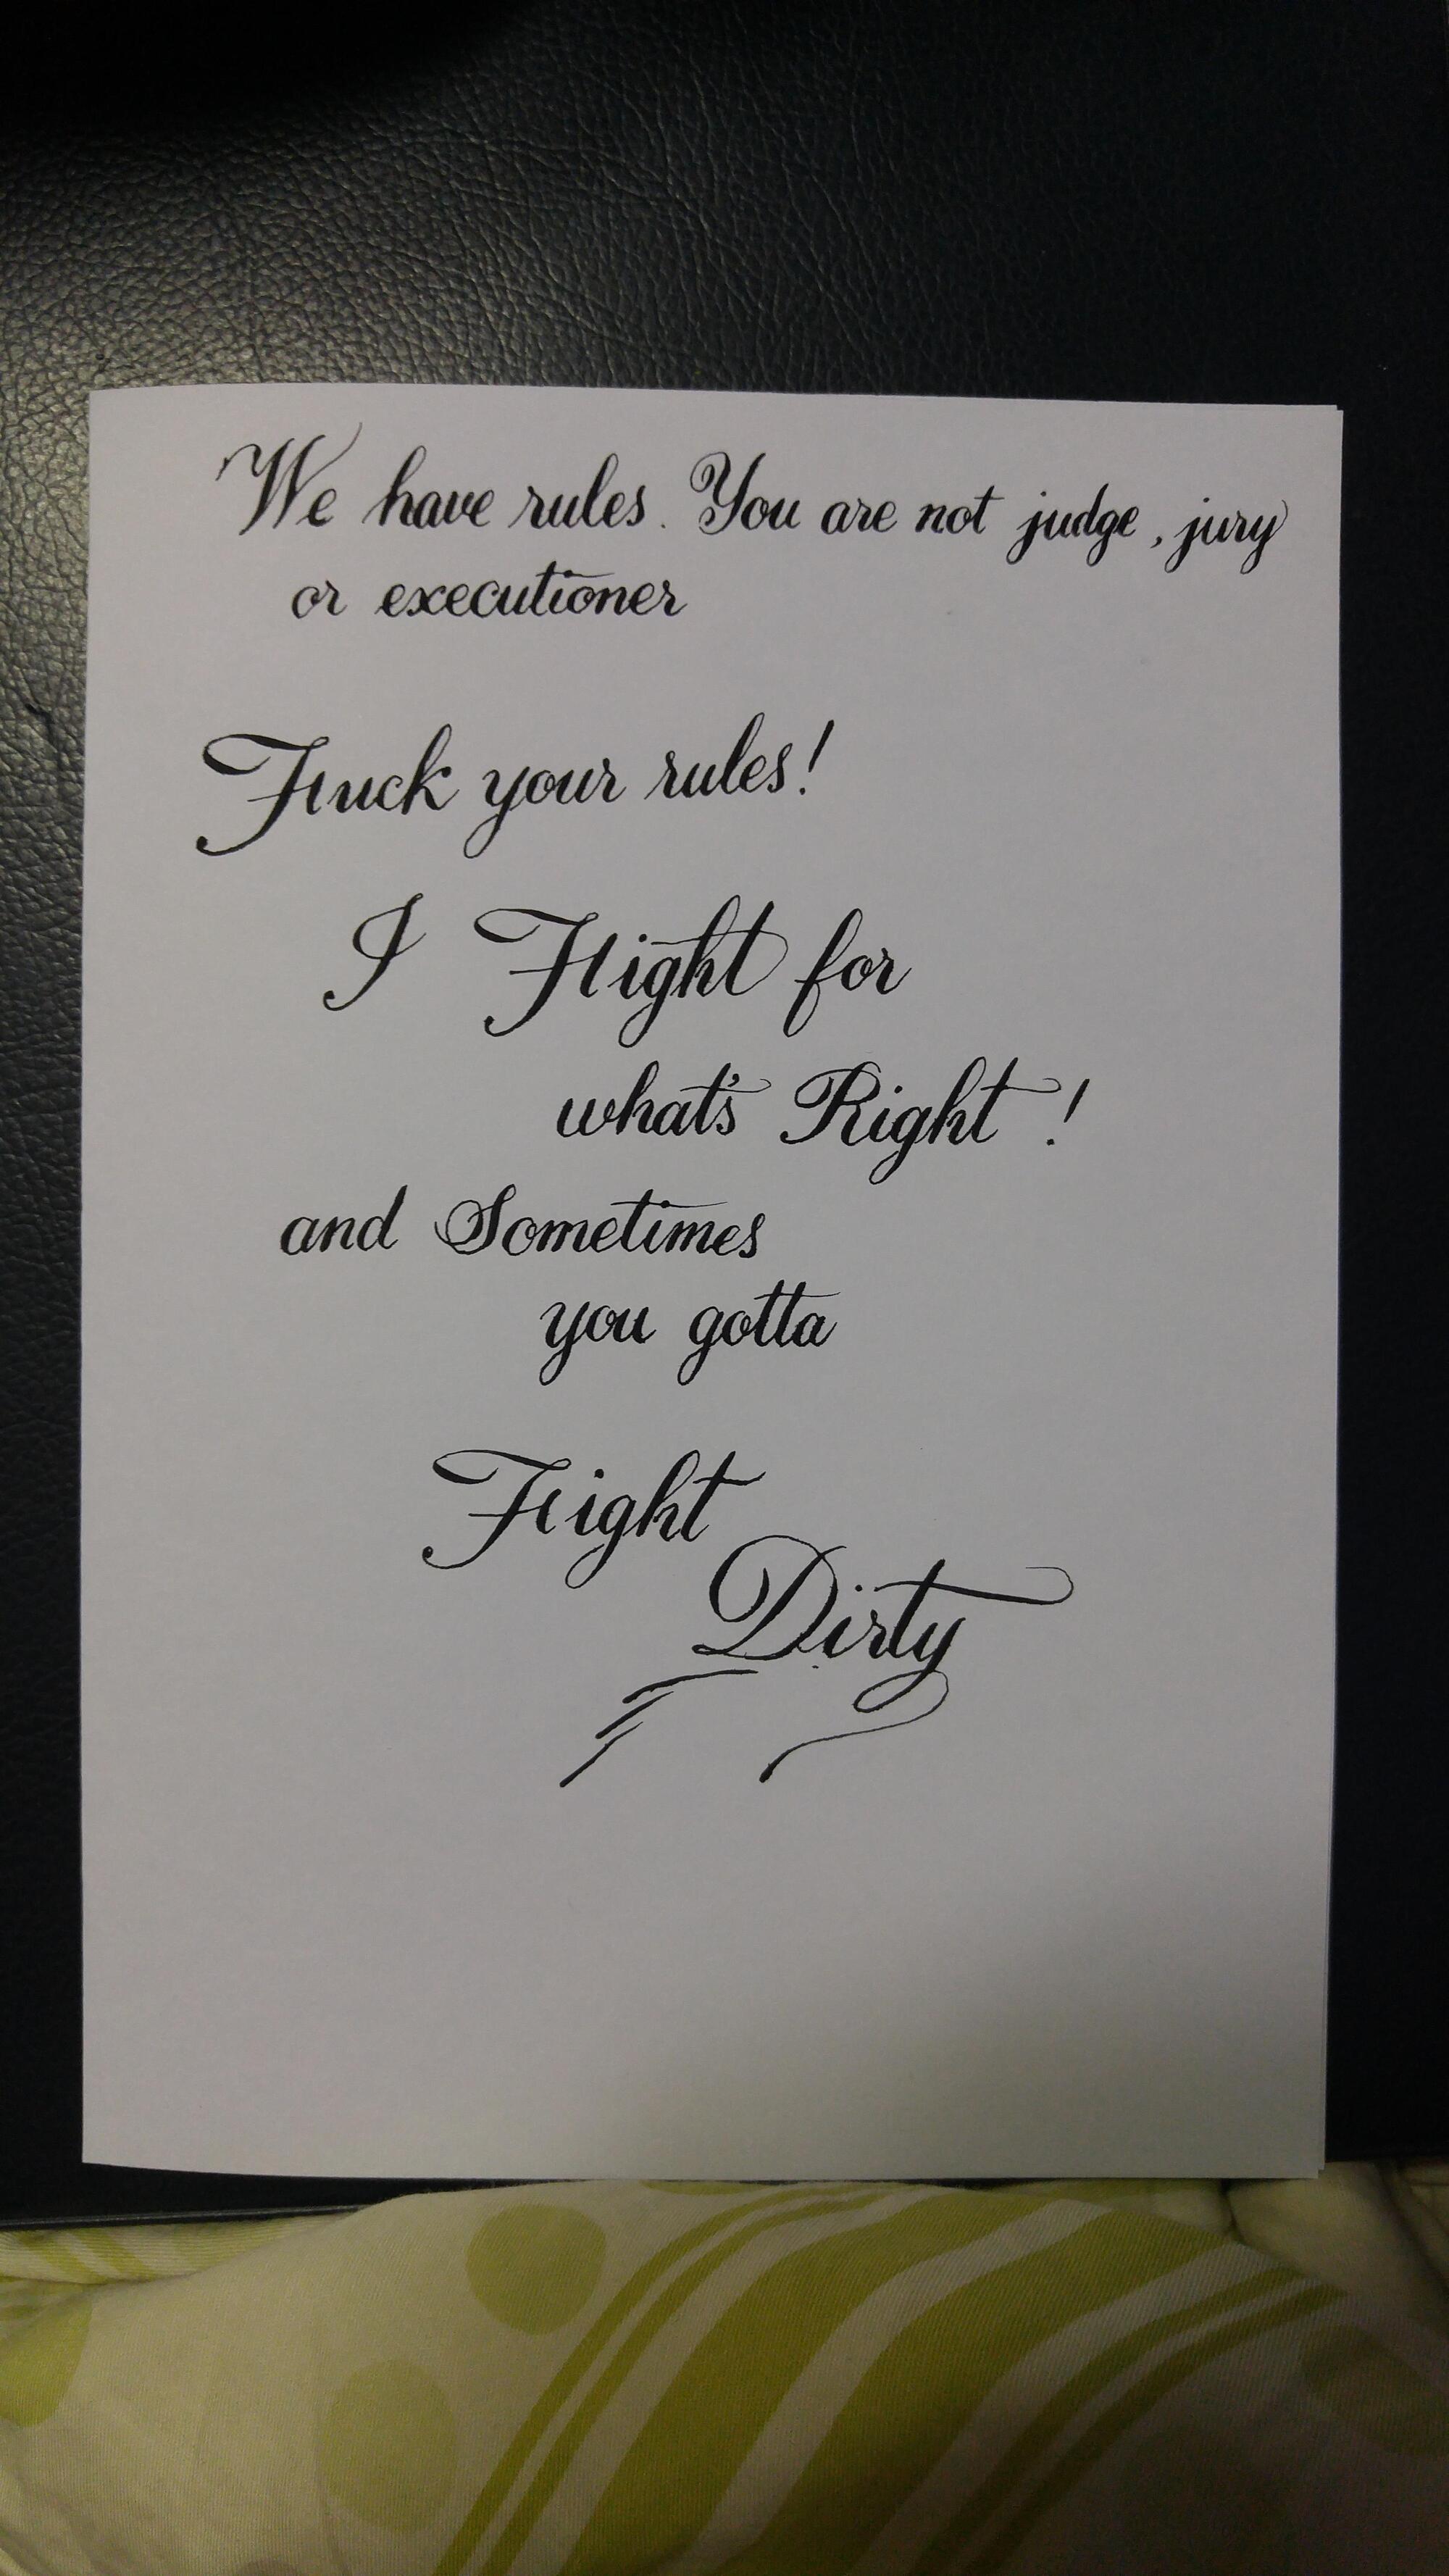 We have rules. You are not judge, jury
or executioner
Fuck your rules!
I Fight for
what's Right!
and Sometimes
you gotta
Fight
Dirty